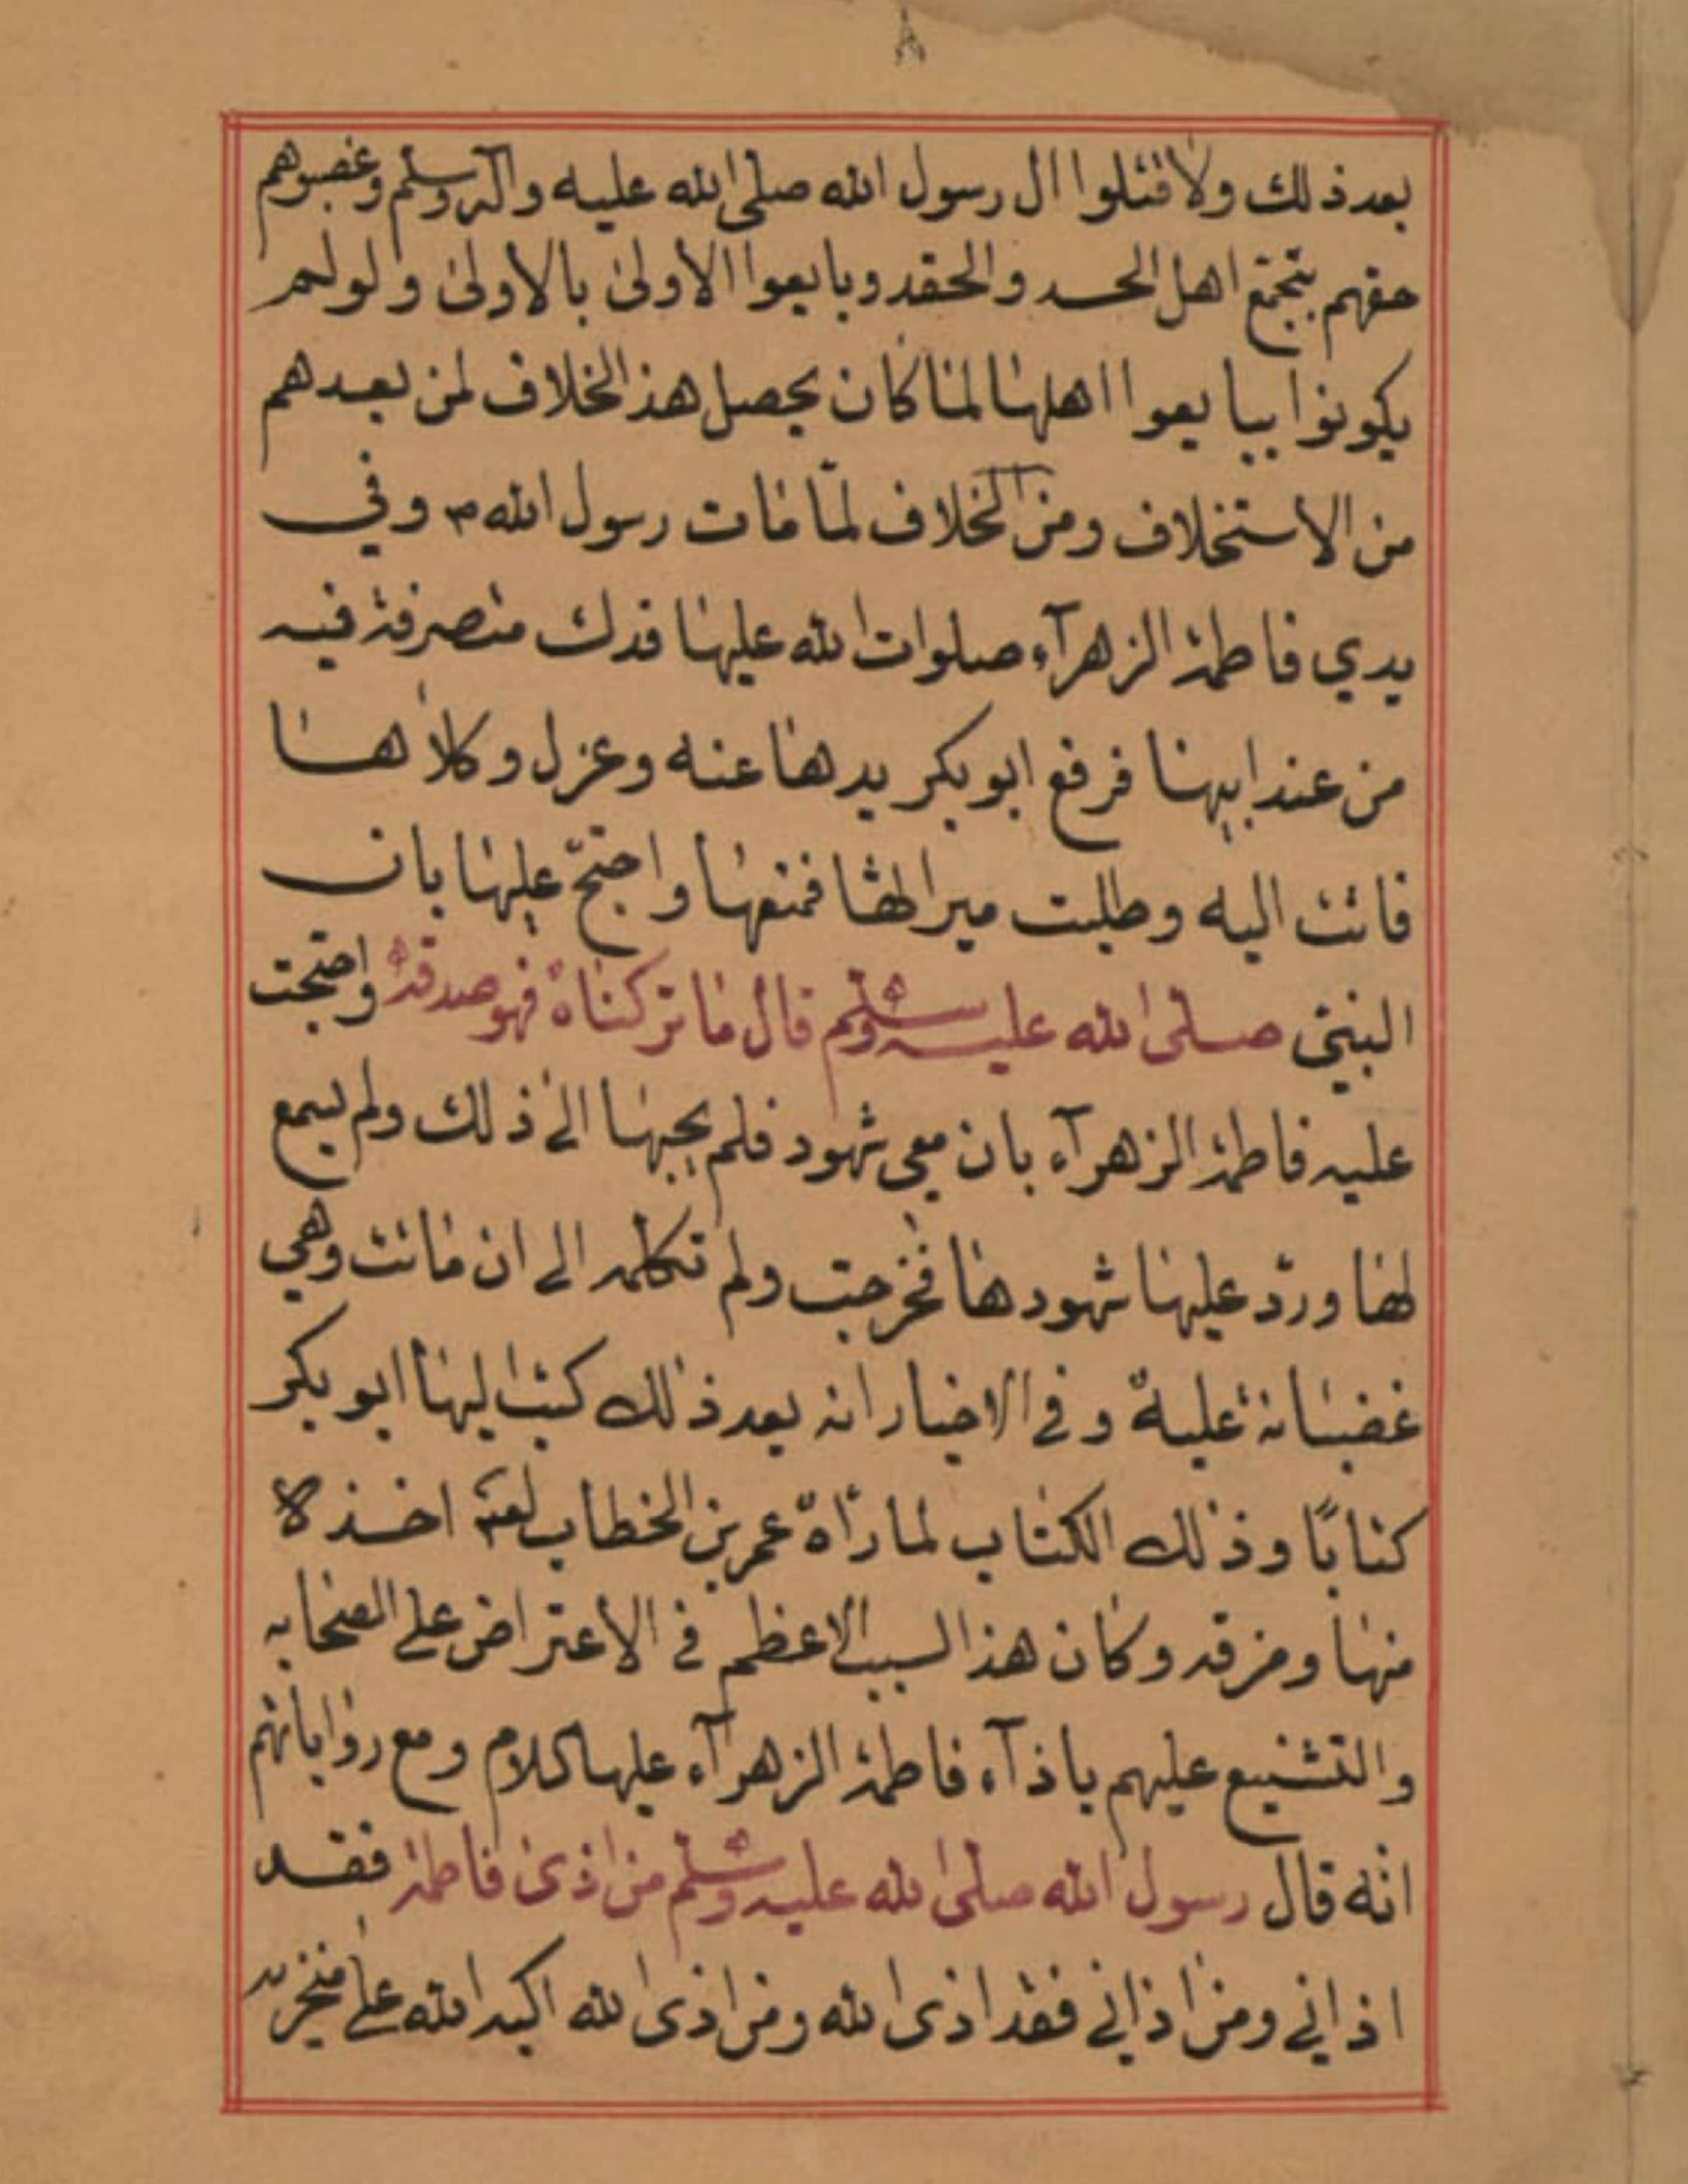 ٨
بعد ذلك ولا قتلوا ال رسول الله صلى الله عليه وآله وسلم وغصبوهم
حقهم بتجمّع اهل الحسد والحقد وبايعوا الاولىٰ بالاولىٰ ولو لم
يكونوا يبايعوا اهلها لما كان يحصل هذ الخلاف لمن بعدهم
من الاستخلاف ومن الخلاف لمّا مات رسول الله ص وفي
يدي فاطمة الزهرآء صلوات الله عليها فدك متصرفة فيه
من عند ابيها فرفع ابو بكر يدها عنه وعزل وكلاٰ ها
فاتت اليه وطلبت ميراثها فمنعها واحتجّ عليها بان
النبيّ صلى الله عليه وسلم قال ما تركناه فهو صدقة واحتجت
عليه فاطمة الزهرآء بان معي شهود فلم يجبها الىٰ ذلك ولم يسمع
لها وردّ عليها شهودها فخرجت ولم تكلمه الى ان ماتت وهي
غضبانة عليه وفي الاخبار انه بعد ذلك كتب اليها ابو بكر
كتابًا وذلك الكتاب لما رآه عمر بن الخطاب اخذه
منها ومزقه وكان هذ السبب الاعظم في الاعتراض على الصحابه
والتشنيع عليهم باذآء فاطمة الزهرآء عليها كلام ومع رواياتهم
انّه قال رسول الله صلى الله عليه وسلم من اذىٰ فاطمة فقد
اذاني ومن اذاني فقد اذى الله ومن اذى الله اكبه الله على منخريه